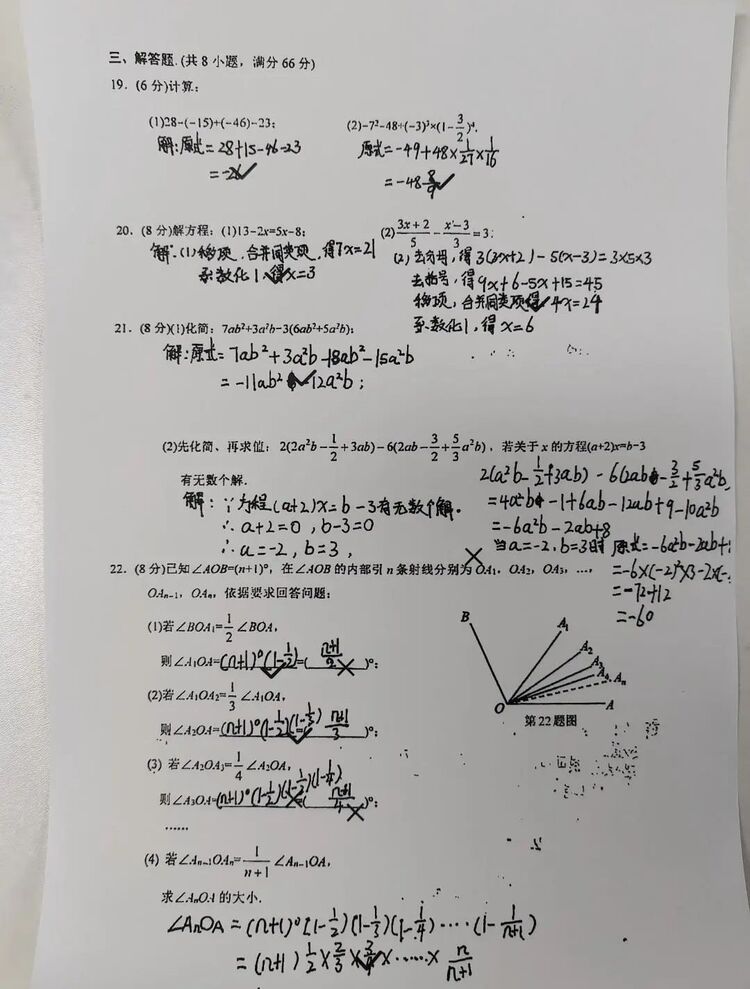 三、解答题.(共8小题，满分66分)
19．(6分)计算：
(1)28-(-15)+(-46)-23；
(2)-7²-48÷(-3)³×(1-3/2)⁴.
解：原式=28+15-46-23
=-26
原式=-49+48×1/27×1/16
=-48 8/9
20．(8分)解方程：(1)13-2x=5x-8；
(2)(3x+2)/5-(x-3)/3=3；
解：(1)移项，合并同类项，得7x=21
系数化1，得x=3
(2)去分母，得3(3x+2)-5(x-3)=3×5×3
去括号，得9x+6-5x+15=45
移项，合并同类项得，4x=24
系数化1，得x=6
21．(8分)(1)化简：7ab²+3a²b-3(6ab²+5a²b)；
解：原式=7ab²+3a²b-18ab²-15a²b
=-11ab² 12a²b；
(2)先化简、再求值：2(2a²b-1/2+3ab)-6(2ab-3/2+5/3a²b)，若关于x的方程(a+2)x=b-3
有无数个解．
解：∵方程(a+2)x=b-3有无数个解.
∴a+2=0，b-3=0
∴a=-2，b=3，
2(a²b-1/2+3ab)-6(2ab-3/2+5/3a²b
=4a²b-1+6ab-12ab+9-10a²b
=-6a²b-2ab+8
当a=-2，b=3时 原式=-6a²b-2ab+
=-6×(-2)²×3-2×(-
=-72+12
=-60
22．(8分)已知∠AOB=(n+1)°，在∠AOB的内部引n条射线分别为OA₁，OA₂，OA₃，…，
OAₙ₋₁，OAₙ，依据要求回答问题：
(1)若∠BOA₁=1/2∠BOA，
则∠A₁OA=(n+1)°(1-1/2)=((n+1)/2)°；
(2)若∠A₁OA₂=1/3∠A₁OA，
则∠A₂OA=(n+1)°(1-1/2)(1-1/3) (n+1)/3)°；
(3)若∠A₂OA₃=1/4∠A₂OA，
则∠A₃OA=(n+1)°(1-1/2)(1-1/3)(1-1/4)=((n+1)/4)°；
……
(4)若∠Aₙ₋₁OAₙ=1/(n+1)∠Aₙ₋₁OA，
求∠AₙOA的大小．
∠AₙOA=(n+1)°(1-1/2)(1-1/3)(1-1/4)····(1-1/(n+1))
=(n+1)1/2×2/3×3/4×……×n/(n+1)
B
A₁
A₂
A₃
A₄
Aₙ
O
A
第22题图